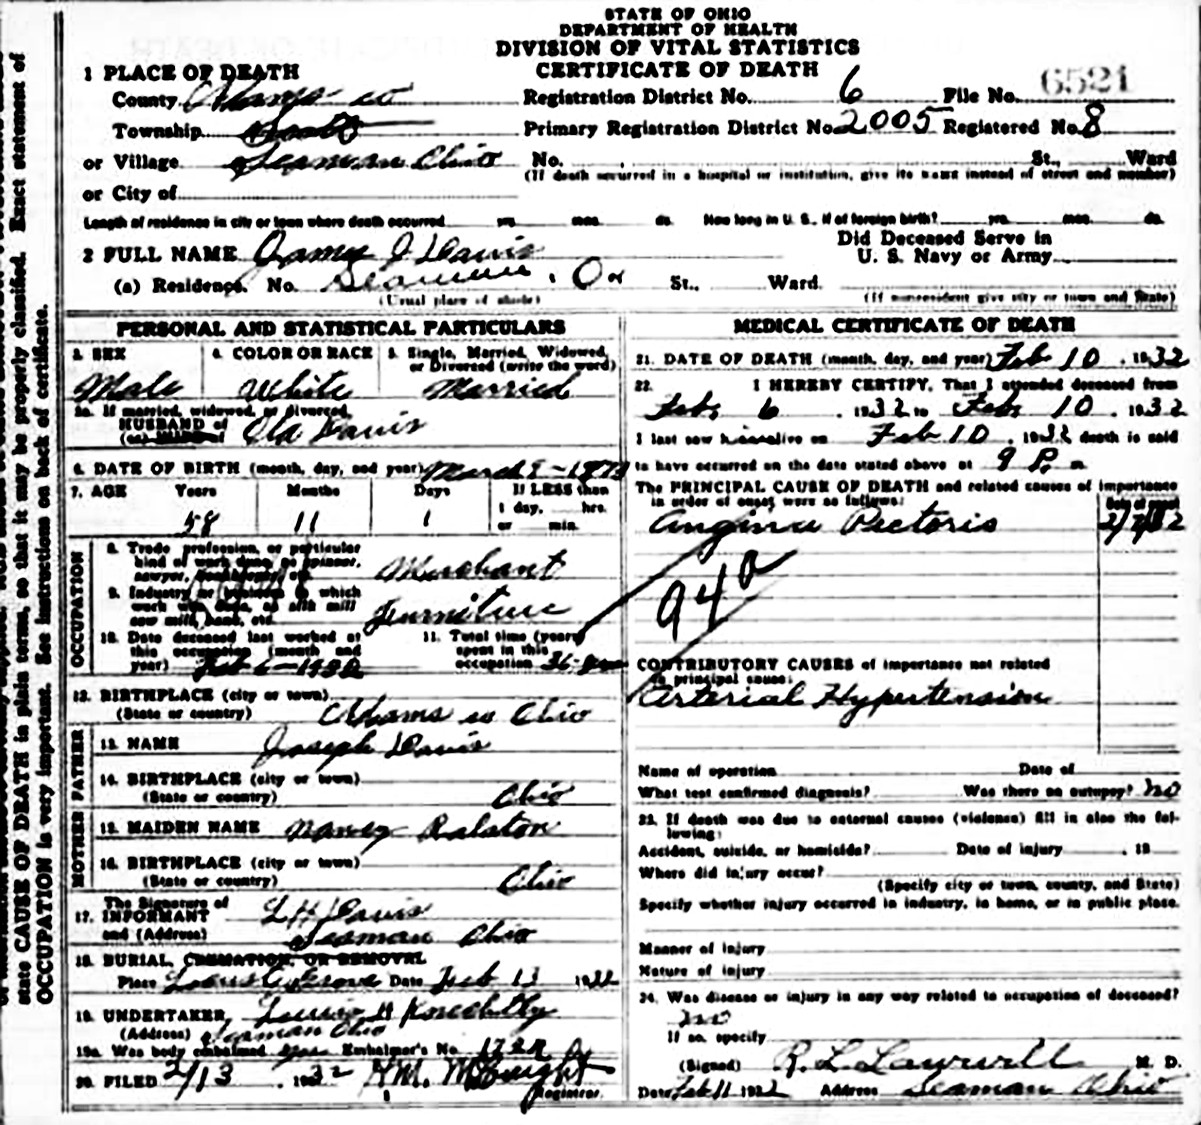 STATE OF OHIO
DEPARTMENT OF HEALTH
DIVISION OF VITAL STATISTICS
CERTIFICATE OF DEATH
1 PLACE OF DEATH
County Adams co Registration District No. 6 File No. 6521
Township Scott Primary Registration District No. 2005 Registered No. 8
or Village Seaman Ohio No. St., Ward
(If death occurred in a hospital or institution, give its name instead of street and number)
or City of
Length of residence in city or town where death occurred yrs. mos. ds. How long in U. S., if of foreign birth? yrs. mos. ds.
2 FULL NAME James J Davis Did Deceased Serve in U. S. Navy or Army
(a) Residence. No. Seaman, O St., Ward.
(Usual place of abode) (If nonresident give city or town and State)
PERSONAL AND STATISTICAL PARTICULARS
3. SEX Male
4. COLOR OR RACE White
5. Single, Married, Widowed, or Divorced (write the word) Married
5a. If married, widowed, or divorced,
HUSBAND of
(or) WIFE of Davis
6. DATE OF BIRTH (month, day, and year) March 9 - 1873
7. AGE Years Months Days If LESS than
58 11 1 1 day, hrs.
or min.
OCCUPATION
8. Trade, profession, or particular
kind of work done, as spinner,
sawyer, bookkeeper, etc. Merchant
9. Industry or business in which
work was done, as silk mill
saw mill, bank, etc. Furniture
10. Date deceased last worked at
this occupation (month and
year) Feb 6 - 1932
11. Total time (years)
spent in this
occupation 36
12. BIRTHPLACE (city or town)
(State or country) Adams co Ohio
FATHER
13. NAME Joseph Davis
14. BIRTHPLACE (city or town)
(State or country) Ohio
MOTHER
15. MAIDEN NAME Nancy Ralston
16. BIRTHPLACE (city or town)
(State or country) Ohio
The Signature of
17. INFORMANT L H Davis
and (Address) Seaman Ohio
18. BURIAL, CREMATION, OR REMOVAL
Place Locust Grove Date Feb 13 1932
19. UNDERTAKER Lewis H Knechtly
(Address) Seaman Ohio
19a. Was body embalmed yes Embalmer's No.
20. FILED 2/13 1932 H M.
Registrar.
MEDICAL CERTIFICATE OF DEATH
21. DATE OF DEATH (month, day, and year) Feb 10, 1932
22. I HEREBY CERTIFY, That I attended deceased from
Feb. 6, 1932 to Feb. 10, 1932
I last saw h alive on Feb 10, 1932 death is said
to have occurred on the date stated above at 9 P. m
The PRINCIPAL CAUSE OF DEATH and related causes of importance
in order of onset were as follows: Date of onset
Angina Pectoris 2/7/32
94a
CONTRIBUTORY CAUSES of importance not related
to principal cause:
Arterial Hypertension
Name of operation Date of
What test confirmed diagnosis? Was there an autopsy? no
23. If death was due to external causes (violence) fill in also the fol-
lowing:
Accident, suicide, or homicide? Date of injury , 19
Where did injury occur?
(Specify city or town, county, and State)
Specify whether injury occurred in industry, in home, or in public place.
Manner of injury
Nature of injury
24. Was disease or injury in any way related to occupation of deceased?
no
If so, specify
(Signed) R. L. Lawwill M. D.
Date Feb 11 1932 Address Seaman Ohio
state CAUSE OF DEATH in plain terms, so that it may be properly classified. Exact statement of
OCCUPATION is very important. See instructions on back of certificate.